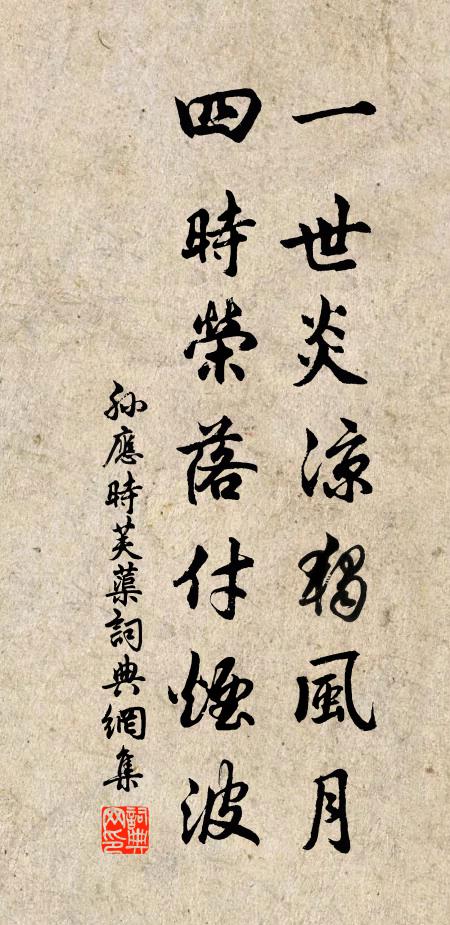 一世炎涼獨風月
四時榮落付煙波
孫應時芙蕖詞典網集
詞典網印